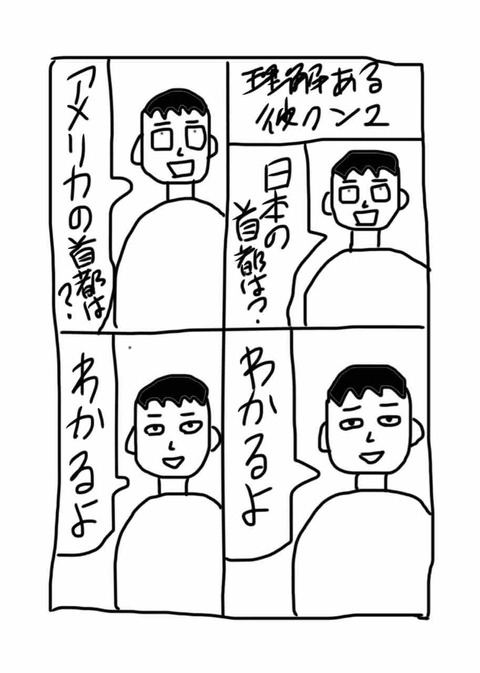 理解ある
彼クン2
日本の
首都は？
わかるよ
アメリカの首都は？
わかるよ